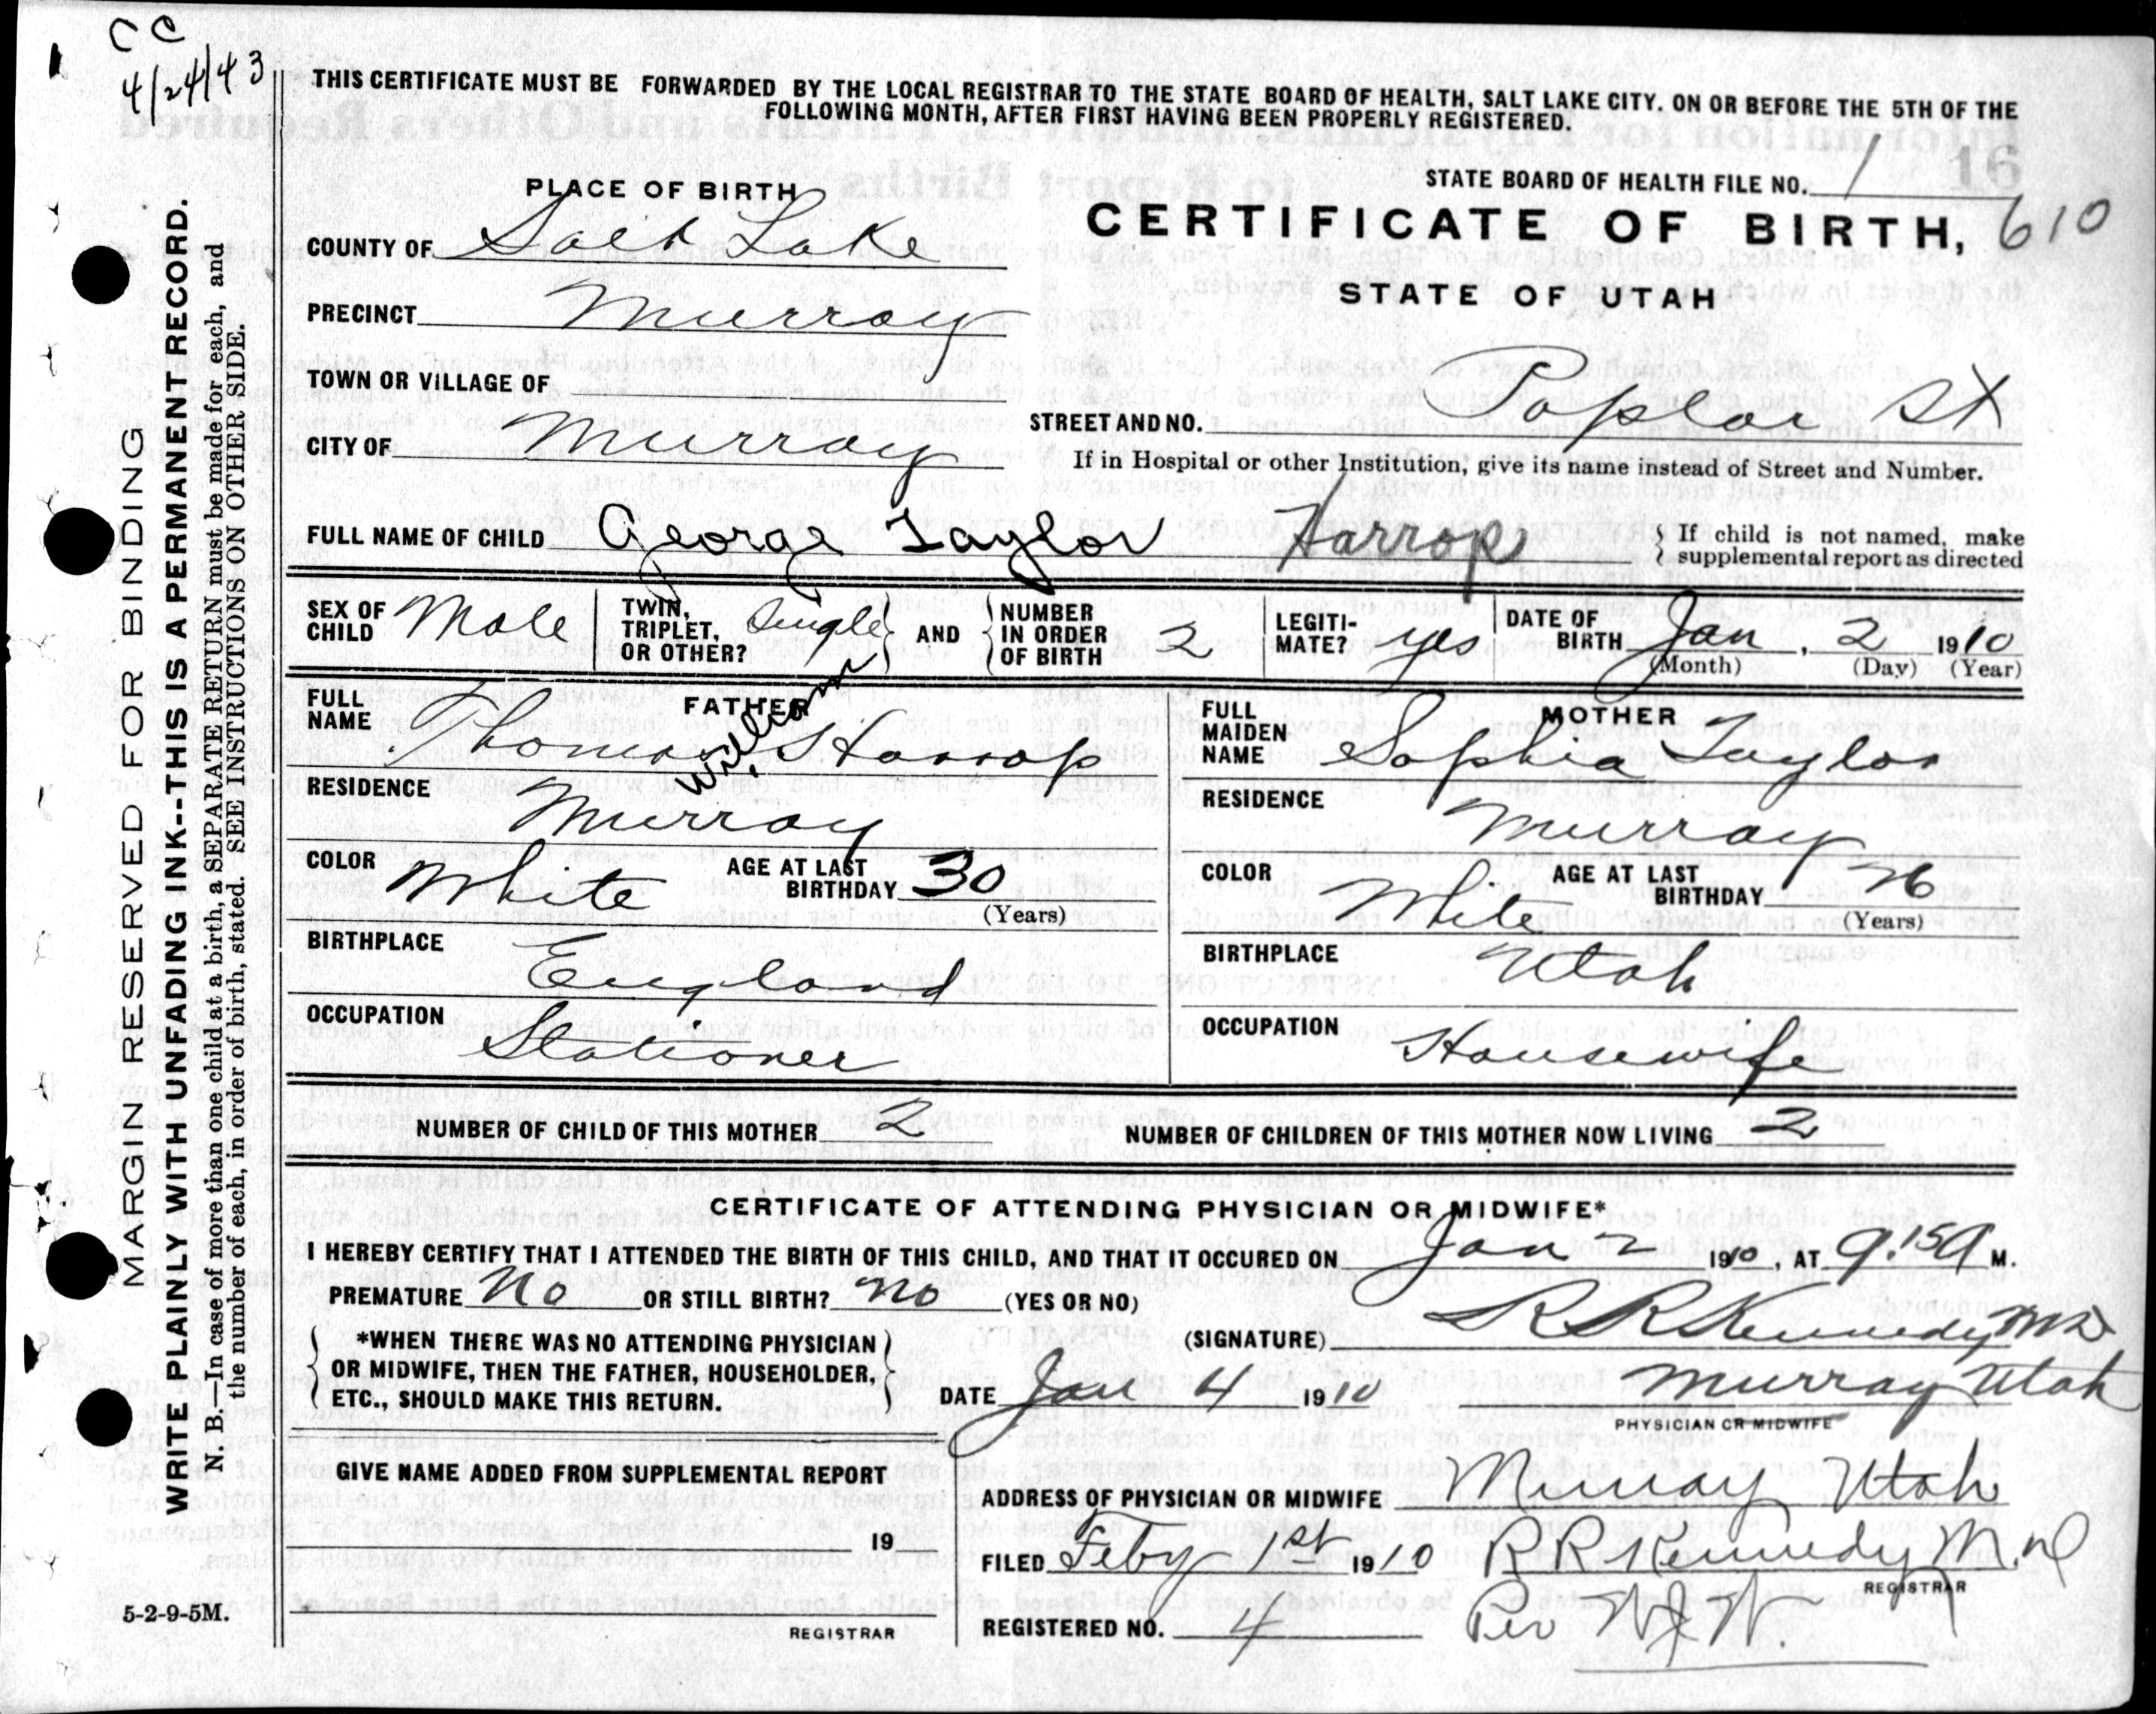 C C
4/24/43
THIS CERTIFICATE MUST BE FORWARDED BY THE LOCAL REGISTRAR TO THE STATE BOARD OF HEALTH, SALT LAKE CITY. ON OR BEFORE THE 5TH OF THE
FOLLOWING MONTH, AFTER FIRST HAVING BEEN PROPERLY REGISTERED.
MARGIN RESERVED FOR BINDING
WRITE PLAINLY WITH UNFADING INK--THIS IS A PERMANENT RECORD.
N. B.—In case of more than one child at a birth, a SEPARATE RETURN must be made for each, and
the number of each, in order of birth, stated. SEE INSTRUCTIONS ON OTHER SIDE.
PLACE OF BIRTH
STATE BOARD OF HEALTH FILE NO. 1 16
COUNTY OF Salt Lake
CERTIFICATE OF BIRTH, 610
STATE OF UTAH
PRECINCT Murray
TOWN OR VILLAGE OF
STREET AND NO. Poplar St
CITY OF Murray
If in Hospital or other Institution, give its name instead of Street and Number.
FULL NAME OF CHILD George Taylor Harrop
If child is not named, make
supplemental report as directed
SEX OF CHILD Male
TWIN, TRIPLET, OR OTHER? Single
AND
NUMBER IN ORDER OF BIRTH 2
LEGITIMATE? yes
DATE OF BIRTH Jan, 2 1910
(Month) (Day) (Year)
FATHER
FULL NAME Thomas William Harrop
RESIDENCE Murray
COLOR White
AGE AT LAST BIRTHDAY 30
(Years)
BIRTHPLACE England
OCCUPATION Stationer
MOTHER
FULL MAIDEN NAME Sophia Taylor
RESIDENCE Murray
COLOR White
AGE AT LAST BIRTHDAY 26
(Years)
BIRTHPLACE Utah
OCCUPATION Housewife
NUMBER OF CHILD OF THIS MOTHER 2
NUMBER OF CHILDREN OF THIS MOTHER NOW LIVING 2
CERTIFICATE OF ATTENDING PHYSICIAN OR MIDWIFE*
I HEREBY CERTIFY THAT I ATTENDED THE BIRTH OF THIS CHILD, AND THAT IT OCCURED ON Jan 2 1910, AT 9:15 A M.
PREMATURE No OR STILL BIRTH? no (YES OR NO)
*WHEN THERE WAS NO ATTENDING PHYSICIAN
OR MIDWIFE, THEN THE FATHER, HOUSEHOLDER,
ETC., SHOULD MAKE THIS RETURN.
(SIGNATURE) R R Kennedy MD
DATE Jan 4 1910
Murray Utah
PHYSICIAN OR MIDWIFE
GIVE NAME ADDED FROM SUPPLEMENTAL REPORT
19
ADDRESS OF PHYSICIAN OR MIDWIFE Murray Utah
FILED Feby 1st 1910 R R Kennedy M.D
REGISTRAR
5-2-9-5M.
REGISTRAR
REGISTERED NO. 4
Per